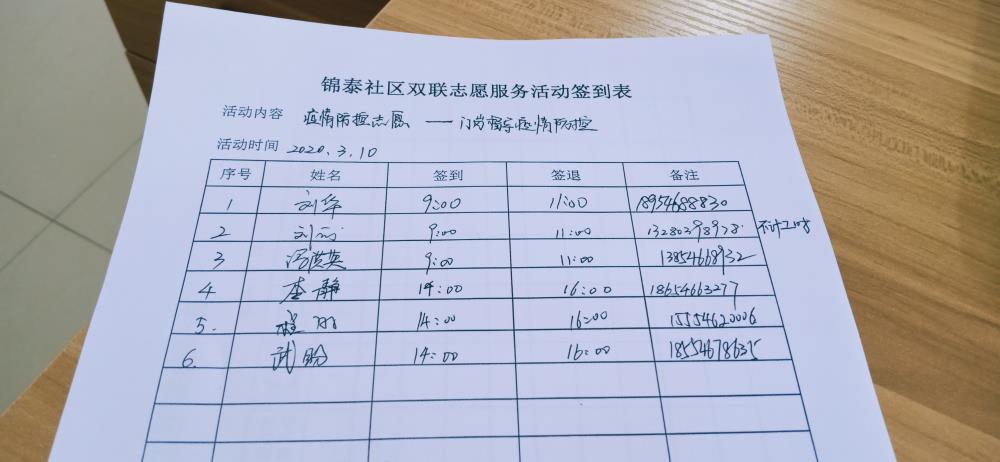 锦泰社区双联志愿服务活动签到表
活动内容 疫情防控志愿 —— 门岗值守疫情防控
活动时间 2020.3.10
序号 姓名 签到 签退 备注
1 刘华 9:00 11:00 18954688830
2 刘 9:00 11:00 不计工时
3 冯洪英 9:00 11:00 13854668932
4 李静 14:00 16:00 18654663277
5. 程 14:00 16:00 15554620006
6. 武盼 14:00 16:00 18554678635